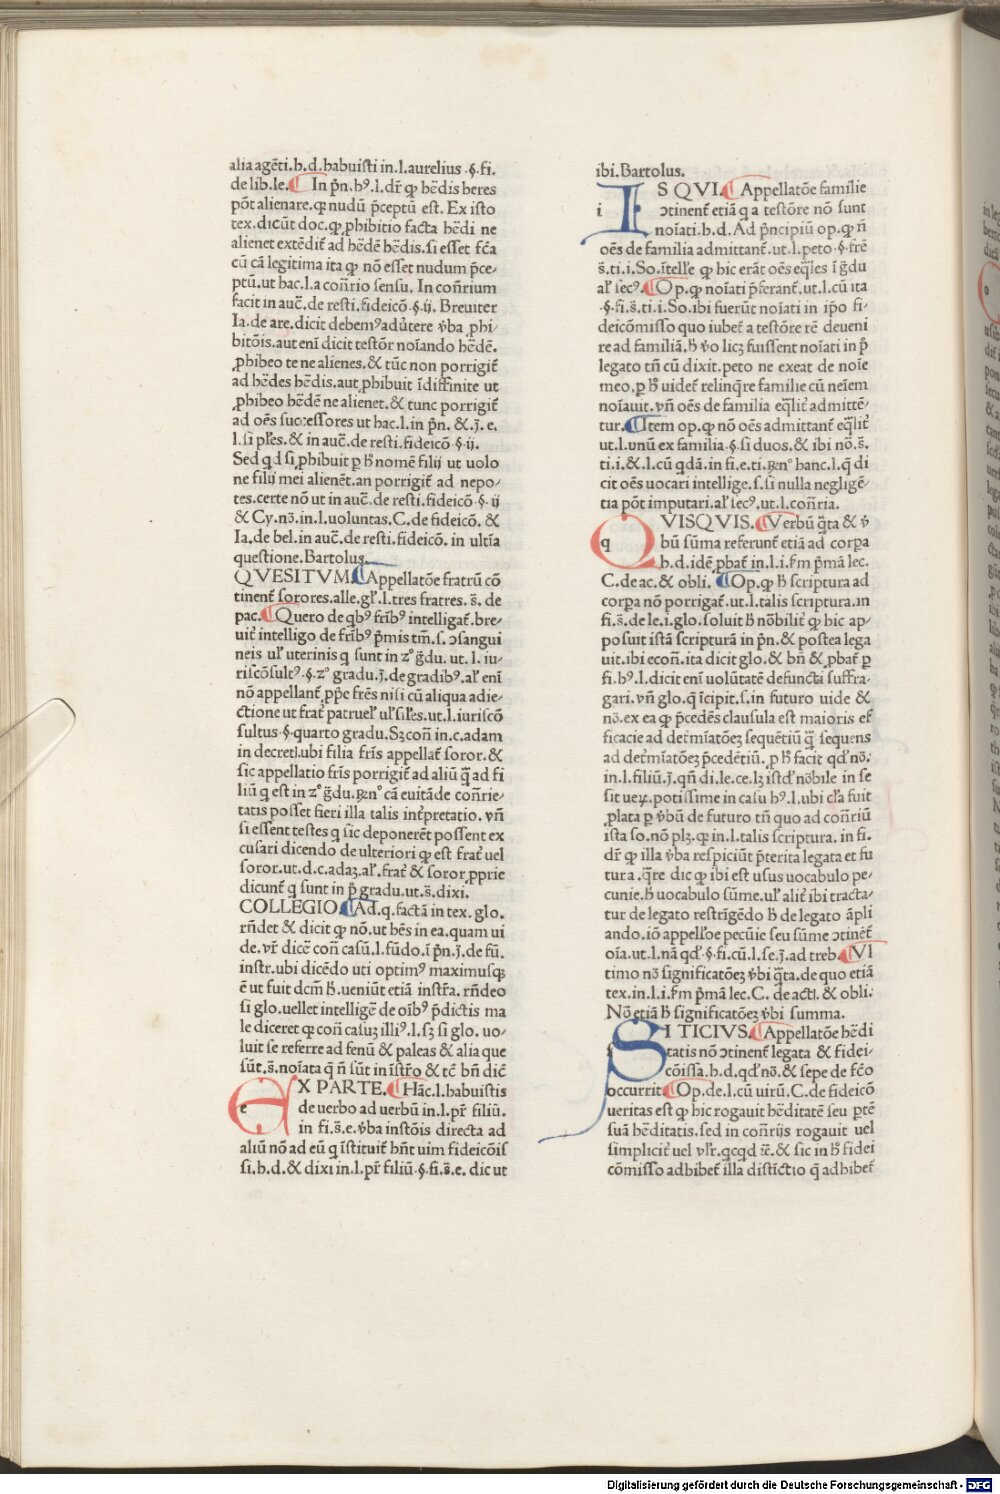 alia agēti.h.d.habuisti in.l.aurelius.§.fi.
de lib.le.¶ In p̄n.hꝰ.l.dr̄ ꝙ hēdis heres
pōt alienare.qꝛ nudū p̄ceptū est. Ex isto
tex.dicūt doc.ꝙ,phibitio facta hēdi ne
alienet extēdit̄ ad hēdē hēdis.si esset fc̄a
cū cā legitima ita ꝙ nō esset nudum p̄ce-
ptū.ut hac.l.a con̄rio sensu. In con̄rium
facit in auc̄.de resti.fideicō.§.ij. Breuiter
Ia.de are.dicit debemꝰ aduṫere v̇ba ,phi-
bitōis.aut eni dicit testōr noīando hēdē.
,phibeo te ne alienes.& tūc non porrigit̄
ad hēdes hēdis.aut,phibuit īdiffinite ut
,phibeo hēdē ne alienet.& tunc porrigit̄
ad oēs successores ut hac.l.in p̄n. & .j. e.
l.si pl̄es.& in auc̄.de resti.fideicō.§.ij.
Sed qd si,phibuit p h̄ nomē filij ut uolo
ne filij mei alienēt.an porrigit̄ ad nepo-
tes.certe nō ut in auc̄.de resti.fideicō.§.ij
& Cy.nō.in.l.uoluntas.C.de fideicō. &
Ia.de bel.in auc̄.de resti.fideicō. in ultīa
questione.Bartolus.
QVESITVM.¶Appellatōe fratrū cō
tinent̄ sorores.alle.gl̄.l.tres fratres. s̄. de
pac.¶Quero de qbꝰ frībꝰ intelligat̄.bre-
uit̄ intelligo de frībꝰ p̄mis tm̄.s. ɔsangui
neis ul̄ uterinis q sunt in zº ḡdu. ut. l. iu-
riscōsultꝰ.§.zº gradu.j.de gradibꝰ.al̄ enī
nō appellant̄ ,ppe frēs nisi cū aliqua adie-
ctione ut frat̄ patruel̄ ul̄ sil̄es.ut.l.iuriscō
sultus.§.quarto gradu.Sꝫ con̄ in.c.adam
in decretl.ubi filia fris appellat̄ soror.&
sic appellatio fris porrigit̄ ad aliū q̄ ad fi
liū q est in zº ḡdu.ꝶnº cā euitāde con̄rie-
tatis posset fieri illa talis int̄pretatio. vn̄
si essent testes q sic deponerēt possent ex
cusari dicendo de ulteriori ꝙ est frat̄ uel
soror.ut.d.c.adaꝫ.al̄.frat̄ & soror,pprie
dicunt̄ q sunt in p̄ gradu.ut.s̄.dixi.
COLLEGIO.¶Ad.q.factā in tex. glo.
rn̄det & dicit ꝙ nō.ut hēs in ea.quam ui
de.vr̄ dicē con̄ casū.l.fūdo.ī p̄n.j.de fū.
instr.ubi dicēdo uti optimꝰ maximusqꝫ
ē ut fuit dcm̄ h̄.ueniūt etiā instr̄a. rn̄deo
si glo.uellet intelligē de oībꝰ p̄dictis ma
le diceret ꝙ con̄ casuꝫ illiꝰ.l.sꝫ si glo. uo-
luit se referre ad fenū & paleas & alia que
sūt.s̄.noīata q n̄ sūt in īstr̄o & tc̄ bn̄ dic̄
EX PARTE.¶Hāc.l.habuistis
e de uerbo ad uerbū in.l.pr̄ filiū.
in fi.s̄.e.v̇ba instōis directa ad
aliū nō ad eū q īstituit̄ hn̄t uim fideicōis
si.h.d.& dixi in.l.pr̄ filiū.§.fi.s̄.e. dic ut
ibi.Bartolus.
IS QVI.¶Appellatōe familie
i ɔtinent̄ etiā q a testōre nō sunt
noīati.h.d. Ad p̄ncipiū op.ꝙ n̄
oēs de familia admittant̄.ut.l.peto.§.frē
s̄.ti.i.So.ītelle ꝙ hic erāt oēs eq̄les ī ḡdu
al̄ secꝰ.¶Op.ꝙ noīati p̄ferant̄.ut.l.cū ita
.§.fi.s̄.ti.i.So.ibi fuerūt noīati in ip̄o fi-
deicōmisso quo iubet̄ a testōre rē deueni
re ad familiā.h̄ v̇o licꝫ fuissent noīati in p̄
legato tn̄ cū dixit.peto ne exeat de noīe
meo,p h̄ uidet̄ relinq̄re familie cū neīem
noīauit.vn̄ oēs de familia eq̄lit̄ admittē-
tur.¶Item op.ꝙ nō oēs admittant̄ eq̄lit̄
ut.l.unū ex familia.§.si duos.& ibi nō.s̄.
ti.i.&.l.cū qdā.in fi.e.ti.ꝶnº hanc.l.q̄ di
cit oēs uocari intellige.s.si nulla negligē-
tia pōt imputari.al̄ secꝰ.ut.l.con̄ria.
QVISQVIS.¶Verbū q̄ta & v̇
q bū sūma referunt̄ etiā ad corpa
h.d.idē ,pbat̄ in.l.i.fm̄ p̄mā lec.
C.de ac.& obli. ¶Op.ꝙ h̄ scriptura ad
corpa nō porrigat̄.ut.l.talis scriptura.in
fi.s̄.de le.i.glo.soluit h̄ nōbilit̄ ꝙ hic ap-
posuit istā scripturā in p̄n.& postea lega
uit.ibi econ̄.ita dicit glo.& bn̄ & ,pbat̄ p
fi.hꝰ.l.dicit enī uolūtatē defuncti suffra-
gari.vn̄ glo.q īcipit.s.in futuro uide &
nō.ex ea ꝙ p̄cedēs clausula est maioris ef
ficacie ad det̄mīatōeꝫ sequētiū q̄ sequens
ad det̄mīatōeꝫ p̄cedētiū.,p h̄ facit qd̄ nō.
in.l.filiū.j.qn̄ di.le.ce.lꝫ istd̄ nōbile in se
sit ueꝝ.potissime in casu hꝰ.l.ubi cl̄a fuit
,plata p v̇bū de futuro tn̄ quo ad con̄riū
ista so.nō plꝫ.ꝙ in.l.talis scriptura. in fi.
dr̄ ꝙ illa v̇ba respiciūt p̄terita legata et fu
tura.q̄re dic ꝙ ibi est usus uocabulo pe-
cunie.h̄ uocabulo sūme.ul̄ alit̄ ibi tracta-
tur de legato restrīgēdo h̄ de legato āpli
ando.iō appellōe pecūie seu sūme ɔtinēt̄
oīa.ut.l.nā qd̄.§.fi.cū.l.se.j.ad treb.¶Vl
timo nō significatōeꝫ v̇bi q̄ta.de quo etiā
tex.in.l.i.fm̄ p̄mā lec.C. de actl. & obli.
Nō etiā h̄ significatōeꝫ v̇bi summa.
SI TICIVS.¶Appellatōe hēdi
s tatis nō ɔtinent̄ legata & fidei-
cōissa.h.d.qd̄ nō. & sepe de fc̄o
occurrit.¶Op.de.l.cū uirū.C.de fideicō
ueritas est ꝙ hic rogauit hēditatē seu ptē
suā hēditatis.sed in con̄rijs rogauit uel
simplicit̄ uel vlr̄.qcqd īē.& sic in h̄ fidei
cōmisso adhibet̄ illa distīctio q̄ adhibet̄
Digitalisierung gefördert durch die Deutsche Forschungsgemeinschaft - DFG